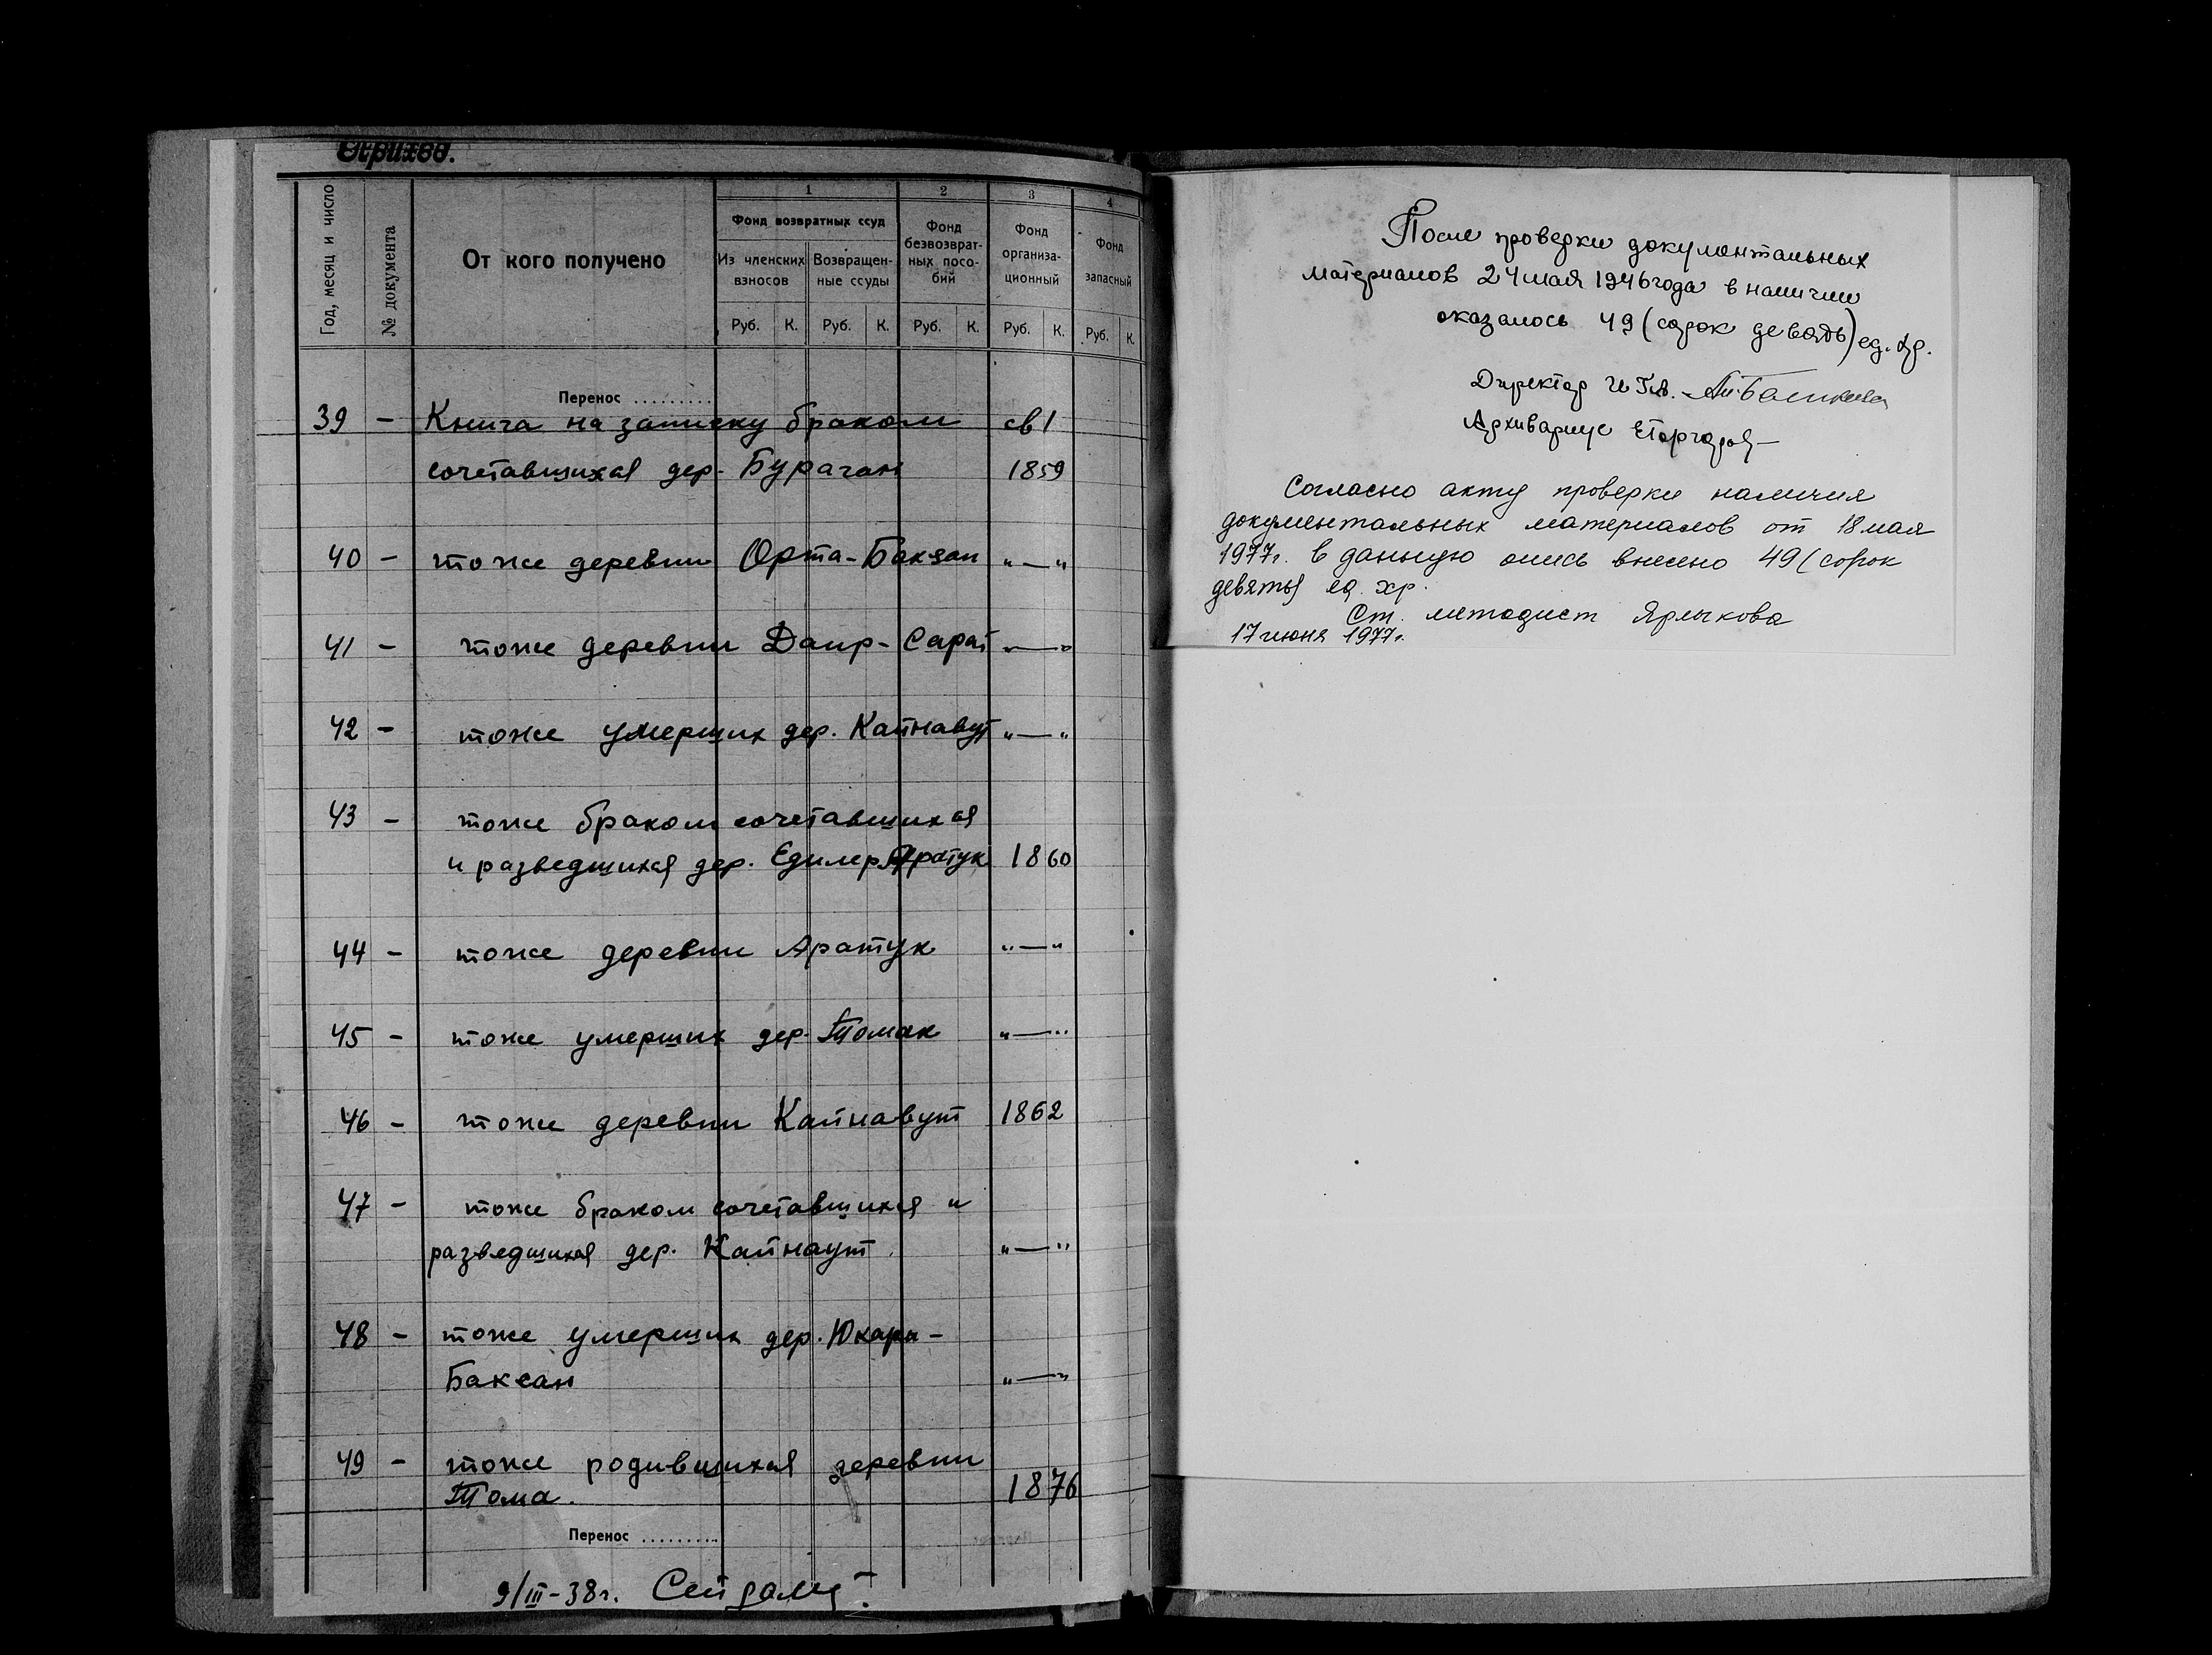 Приход.
Год, месяц и число
№ документа
От кого получено
1
Фонд возвратных ссуд
Из членских взносов
Возвращен-
ные ссуды
2
Фонд
безвозврат-
ных посо-
бий
3
Фонд
организа-
ционный
4
Фонд
запасный
Руб. К. Руб. К. Руб. К. Руб. К. Руб. К.
Перенос ..........
39 - Книга на записку браком св 1
сочетавшихся дер. Бурачан 1859
40 - тоже деревни Орта-Баксан "—"
41 - тоже деревни Даир-Сарай "—"
42 - тоже умерших дер. Кайнавут "—"
43 - тоже браком сочетавшихся
и разведшихся дер. Едилер Аратук 1860
44 - тоже деревни Аратук "—"
45 - тоже умерших дер. Томак "—"
46 - тоже деревни Кайнавут 1862
47 - тоже браком сочетавшихся и
разведшихся дер. Кайнаут. "—"
48 - тоже умерших дер. Юкари-
Баксан "—"
49 - тоже родившихся деревни
Тома. 1876
Перенос ..........
9/III-38г.
После проверки документальных
материалов 24 мая 1946 года в наличии
оказалось 49 (сорок девять) ед. хр.
Директор
Архивариус
Согласно акту проверки наличия
документальных материалов от 18 мая
1977г. в данную опись внесено 49 (сорок
девять) ед. хр.
Ст. методист Ярлыкова
17 июня 1977г.